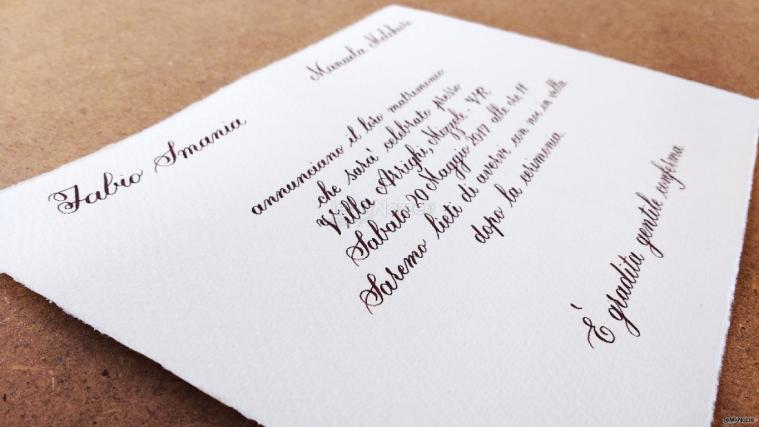 Fabio Smania
Manuela Melchiori
annunciano il loro matrimonio
che sarà celebrato presso
Villa Arrighi, Mizzole - VR
Sabato 20 Maggio 2017 alle ore 11
Saremo lieti di avervi con noi in villa
dopo la cerimonia.
È gradita gentile conferma